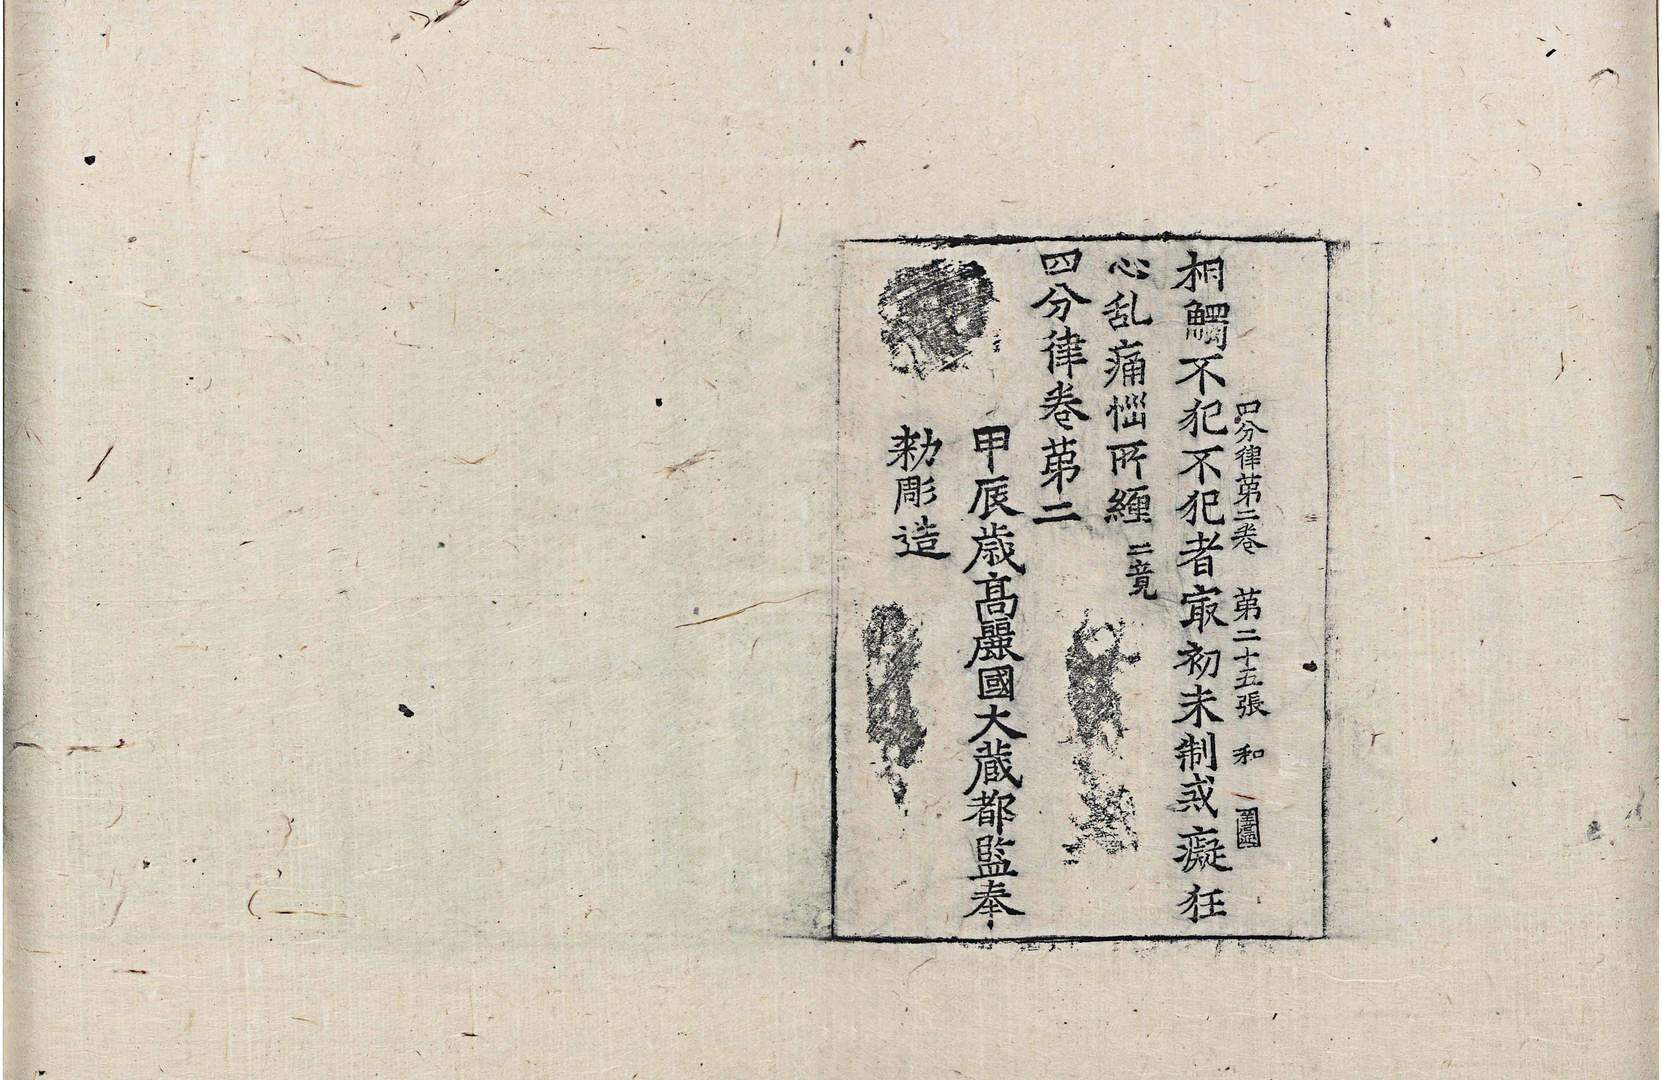 四分律第二卷　第二十五張　和
相觸不犯不犯者㝡初未制或癡狂
心乱痛惱所纏二竟
四分律卷第二
甲辰歲高麗國大藏都監奉
勅彫造